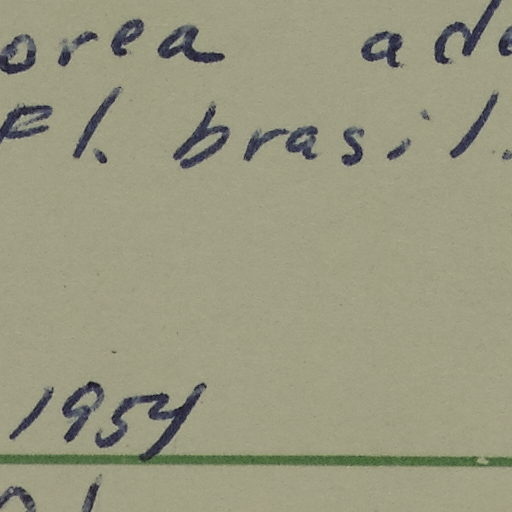 orea ade
Fl. brasil.
1954